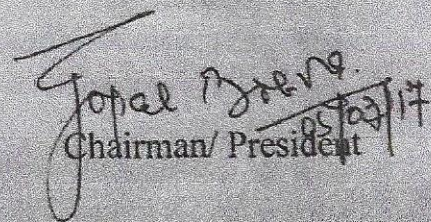 Gopal
05/03/17
Chairman/ President